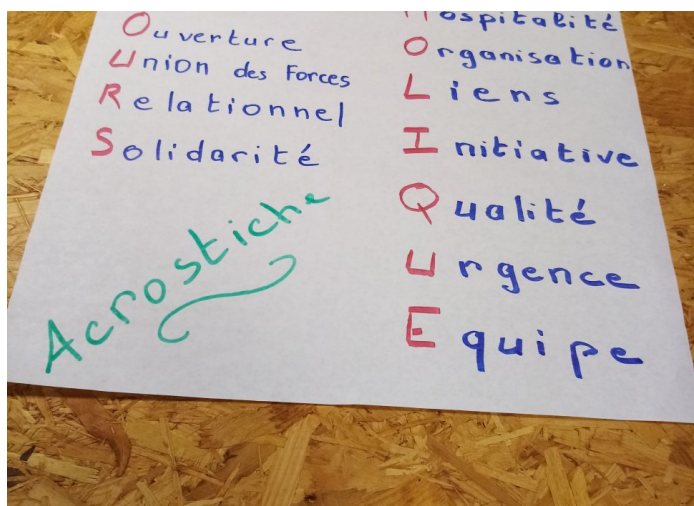 Ouverture
Union des Forces
Relationnel
Solidarité
Acrostiche
Hospitalité
Organisation
Liens
Initiative
Qualité
Urgence
Equipe